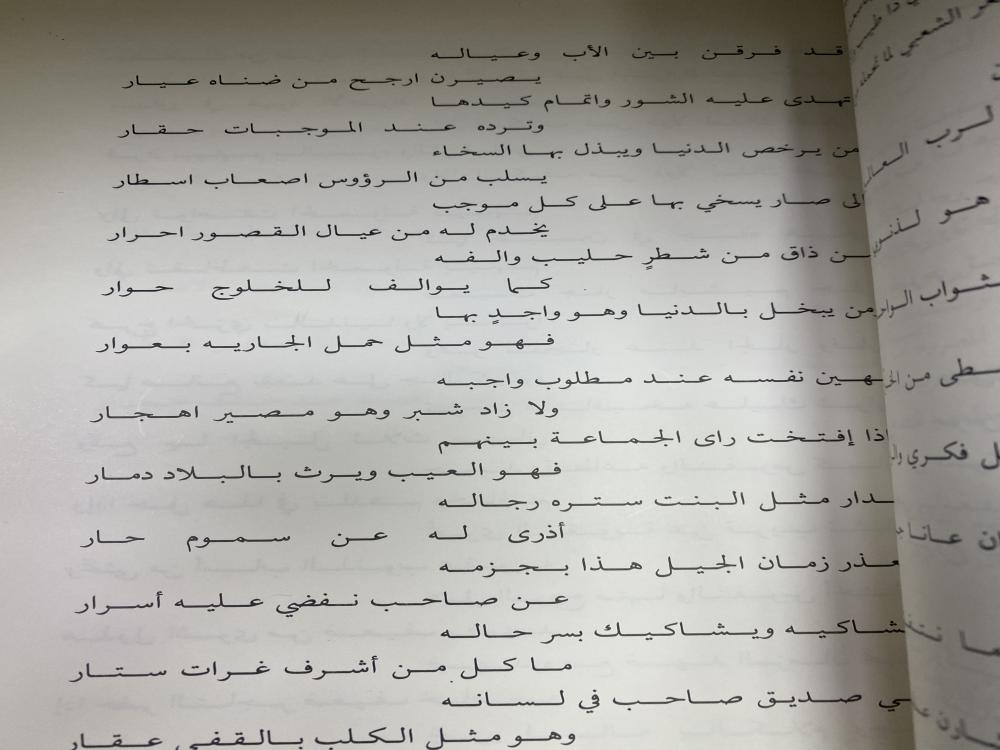 قد فرقن بين الأب وعياله
يصيرن ارجح من ضناه عيار
تهدى عليه الشور واتمام كيدها
وترده عند الموجبات حقار
من يرخص الدنيا ويبذل بها السخاء
يسلب من الرؤوس اصعاب اسطار
الى صار يسخي بها على كل موجب
يخدم له من عيال القصور احرار
ذاق من شطرٍ حليب والفه
كما يوالف للخلوج حوار
من يبخل بالدنيا وهو واجدٍ بها
فهو مثل حمل الجاريه بعوار
نفسه عند مطلوب واجبه
ولا زاد شبر وهو مصير اهجار
إذا إفتخت راى الجماعة بينهم
فهو العيب ويرث بالبلاد دمار
مثل البنت ستره رجاله
أذرى له عن سموم حار
زمان الجيل هذا بجزمه
عن صاحب نفضي عليه أسرار
ويشاكيك بسر حاله
ما كل من أشرف غرات ستار
صديق صاحب في لسانه
وهو مثل الكلب بالقفى عقار
الشعبي
لرب
هو
شواب
من
فكري
عانا